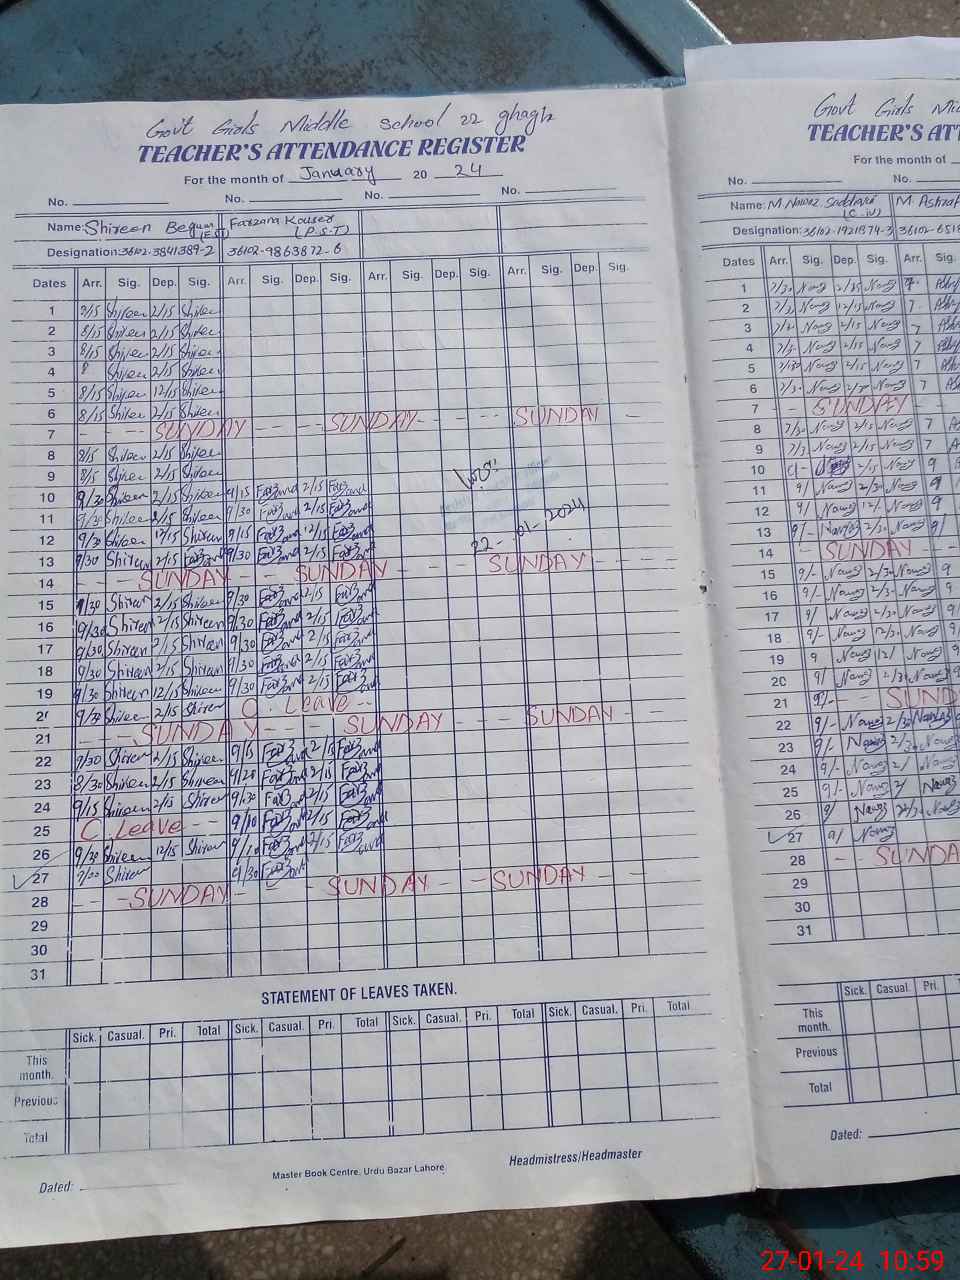 Govt Girls Middle School 22 ghagh
TEACHER'S ATTENDANCE REGISTER
For the month of January 20 24
No. No. No. No.
Name: Shireen Begum (EST) Farzana Kouser (P.S.T)
Designation: 36102-3841389-2 36102-9863872-6
Dates Arr. Sig. Dep. Sig. Arr. Sig. Dep. Sig. Arr. Sig. Dep. Sig. Arr. Sig. Dep. Sig.
1 8/15 Shireen 2/15 Shireen
2 8/15 Shireen 2/15 Shireen
3 8/15 Shireen 2/15 Shireen
4 8 Shireen 2/15 Shireen
5 8/15 Shireen 12/15 Shireen
6 8/15 Shireen 2/15 Shireen
7 SUNDAY SUNDAY SUNDAY
8 8/15 Shireen 2/15 Shireen
9 8/15 Shireen 2/15 Shireen
10 9/30 Shireen 2/15 Shireen 9/15 Farzana 2/15 Farzana
11 9/30 Shireen 2/15 Shireen 9/30 Farzana 2/15 Farzana
12 9/30 Shireen 12/15 Shireen 9/15 Farzana 12/15 Farzana
22-01-2024
13 9/30 Shireen 2/15 Farzana 9/30 Farzana 2/15 Farzana
14 SUNDAY SUNDAY SUNDAY
15 9/30 Shireen 2/15 Shireen 9/30 Farzana 2/15 Farzana
16 9/30 Shireen 2/15 Shireen 9/30 Farzana 2/15 Farzana
17 9/30 Shireen 2/15 Shireen 9/30 Farzana 2/15 Farzana
18 9/30 Shireen 2/15 Shireen 9/30 Farzana 2/15 Farzana
19 9/30 Shireen 12/15 Shireen 9/30 Farzana 2/15 Farzana
9/30 Shireen 2/15 Shireen C. Leave
21 SUNDAY SUNDAY SUNDAY
22 9/30 Shireen 2/15 Shireen 9/15 Farzana 2/15 Farzana
23 8/30 Shireen 2/15 Shireen 9/20 Farzana 2/15 Farzana
24 9/15 Shireen 2/15 Shireen 9/30 Farzana 2/15 Farzana
25 C. Leave 9/10 Farzana 2/15 Farzana
26 9/30 Shireen 12/15 Shireen 9/10 Farzana 2/15 Farzana
27 9/30 Shireen 9/30 Farzana
28 SUNDAY SUNDAY SUNDAY
29
30
31
STATEMENT OF LEAVES TAKEN.
Sick. Casual. Pri. Total Sick. Casual. Pri. Total Sick. Casual. Pri. Total Sick. Casual. Pri. Total
This month.
Previous
Total
Headmistress/Headmaster
Master Book Centre, Urdu Bazar Lahore
Dated:
Govt Girls
TEACHER'S
For the month of
No. No.
Name: M Nawaz (C.IV) M Ashraf
Designation: 36102-1921874-3 36102-
Dates Arr. Sig. Dep. Sig. Arr. Sig.
1 7/30 Nawaz 2/15 Nawaz 7
2 7/30 Nawaz 12/15 Nawaz 7
3 Nawaz 2/15 Nawaz 7
4 Nawaz 2/15 Nawaz 7
5 7/30 Nawaz 2/15 Nawaz 7
6 7/30 Nawaz Nawaz 7
7 SUNDAY
8 7/30 Nawaz 2/15 Nawaz 7
9 7/30 Nawaz 2/15 Nawaz 7
10 9/- 2/15 Nawaz 9
11 9/ Nawaz 2/30 Nawaz 9
12 9/ Nawaz 12/- Nawaz 9/
13 9/- Nawaz 2/30 Nawaz 9/
14 SUNDAY
15 9/- Nawaz 2/30 Nawaz 9
16 9/- Nawaz 2/30 Nawaz 9
17 9/ Nawaz 2/30 Nawaz 9/
18 9/- Nawaz 12/30 Nawaz 9/
19 9 Nawaz 12/ Nawaz 9/
20 9/ Nawaz 2/30 Nawaz 9/
21 9/-
22 9/- Nawaz 2/30 Nawaz
23 9/- Nawaz 2/30 Nawaz
24 9/- Nawaz 2/ Nawaz
25 9/- Nawaz 2/ Nawaz
26 9/ Nawaz Nawaz
27 9/ Nawaz
28 SUNDAY
29
30
31
Sick. Casual. Pri. Sick.
This month.
Previous
Total
Dated:
27-01-24 10.59